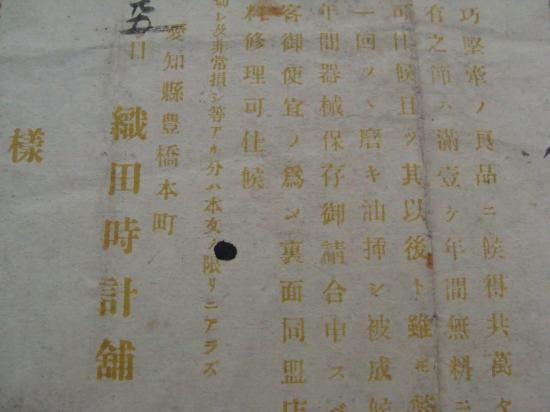 巧堅牢ノ良品ニ候得共萬
有之節ハ滿壹ケ年間無料ニ
可仕候且ツ其以後ト雖モ
一回ツヽ磨キ油揷シ被成候
年間器械保存御請合申スベ
客御便宜ノ爲メ裏面同盟店
料修理可仕候
レ及非常損シ等アル分ハ本文ノ限リニアラズ
愛知縣豊橋本町
日 織田時計舖
樣